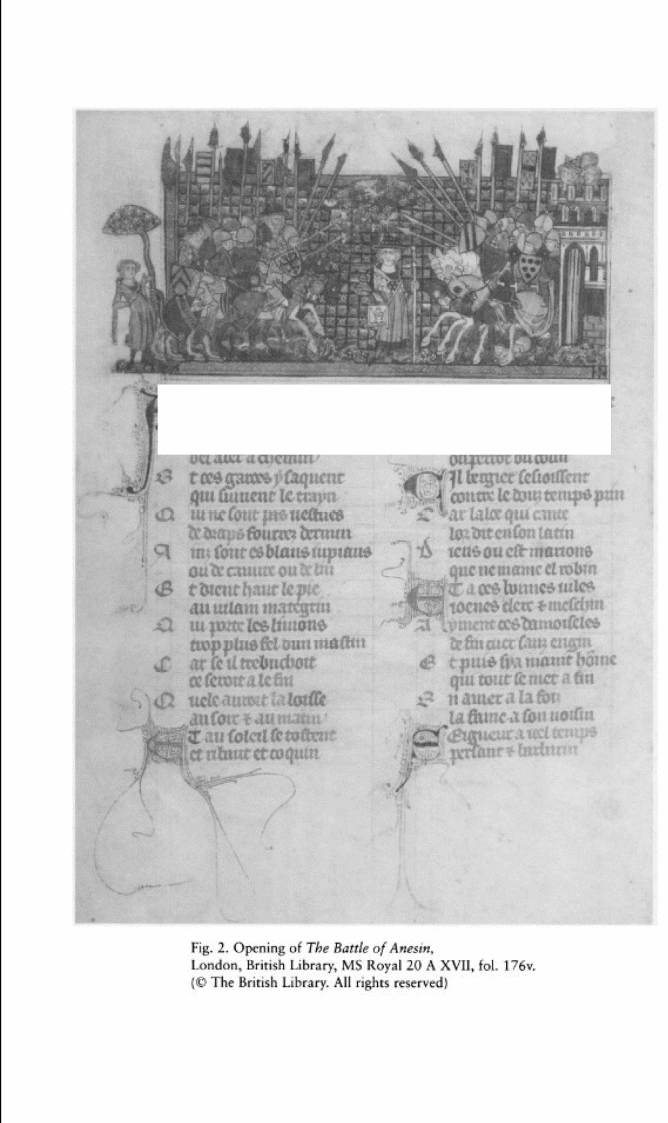 t ces garces y saquent
qui siuuent le trayn
Q ui ne sont pas uestues
de draps fourrez dermin
A ins sont es blans iupiaus
ou de canuue ou de lin
E t dient haut le pie
au uilam mategrin
Q ui porte les liuions
trop plus fel dun mastin
C ar se il trebuchoit
ce seroit a le fin
Q uele auroit la loisse
au soir & au matin
E T au soleil se tostent
et ribaut et coquin
Il bergier sesioissent
contre le douz temps
C ar laloe qui cante
lor dit en son latin
D ieus ou est marions
que ne maine el robin
E T a ces bonnes uiles
ioenes clerc & meschin
A yment ces damoiseles
de fin cuer sanz engin
E t puis
qui tout se met a fin
E n amer a la fon
la fame a son uoisin
S Eigneur a tel temps
persant &
Fig. 2. Opening of The Battle of Anesin,
London, British Library, MS Royal 20 A XVII, fol. 176v.
(© The British Library. All rights reserved)